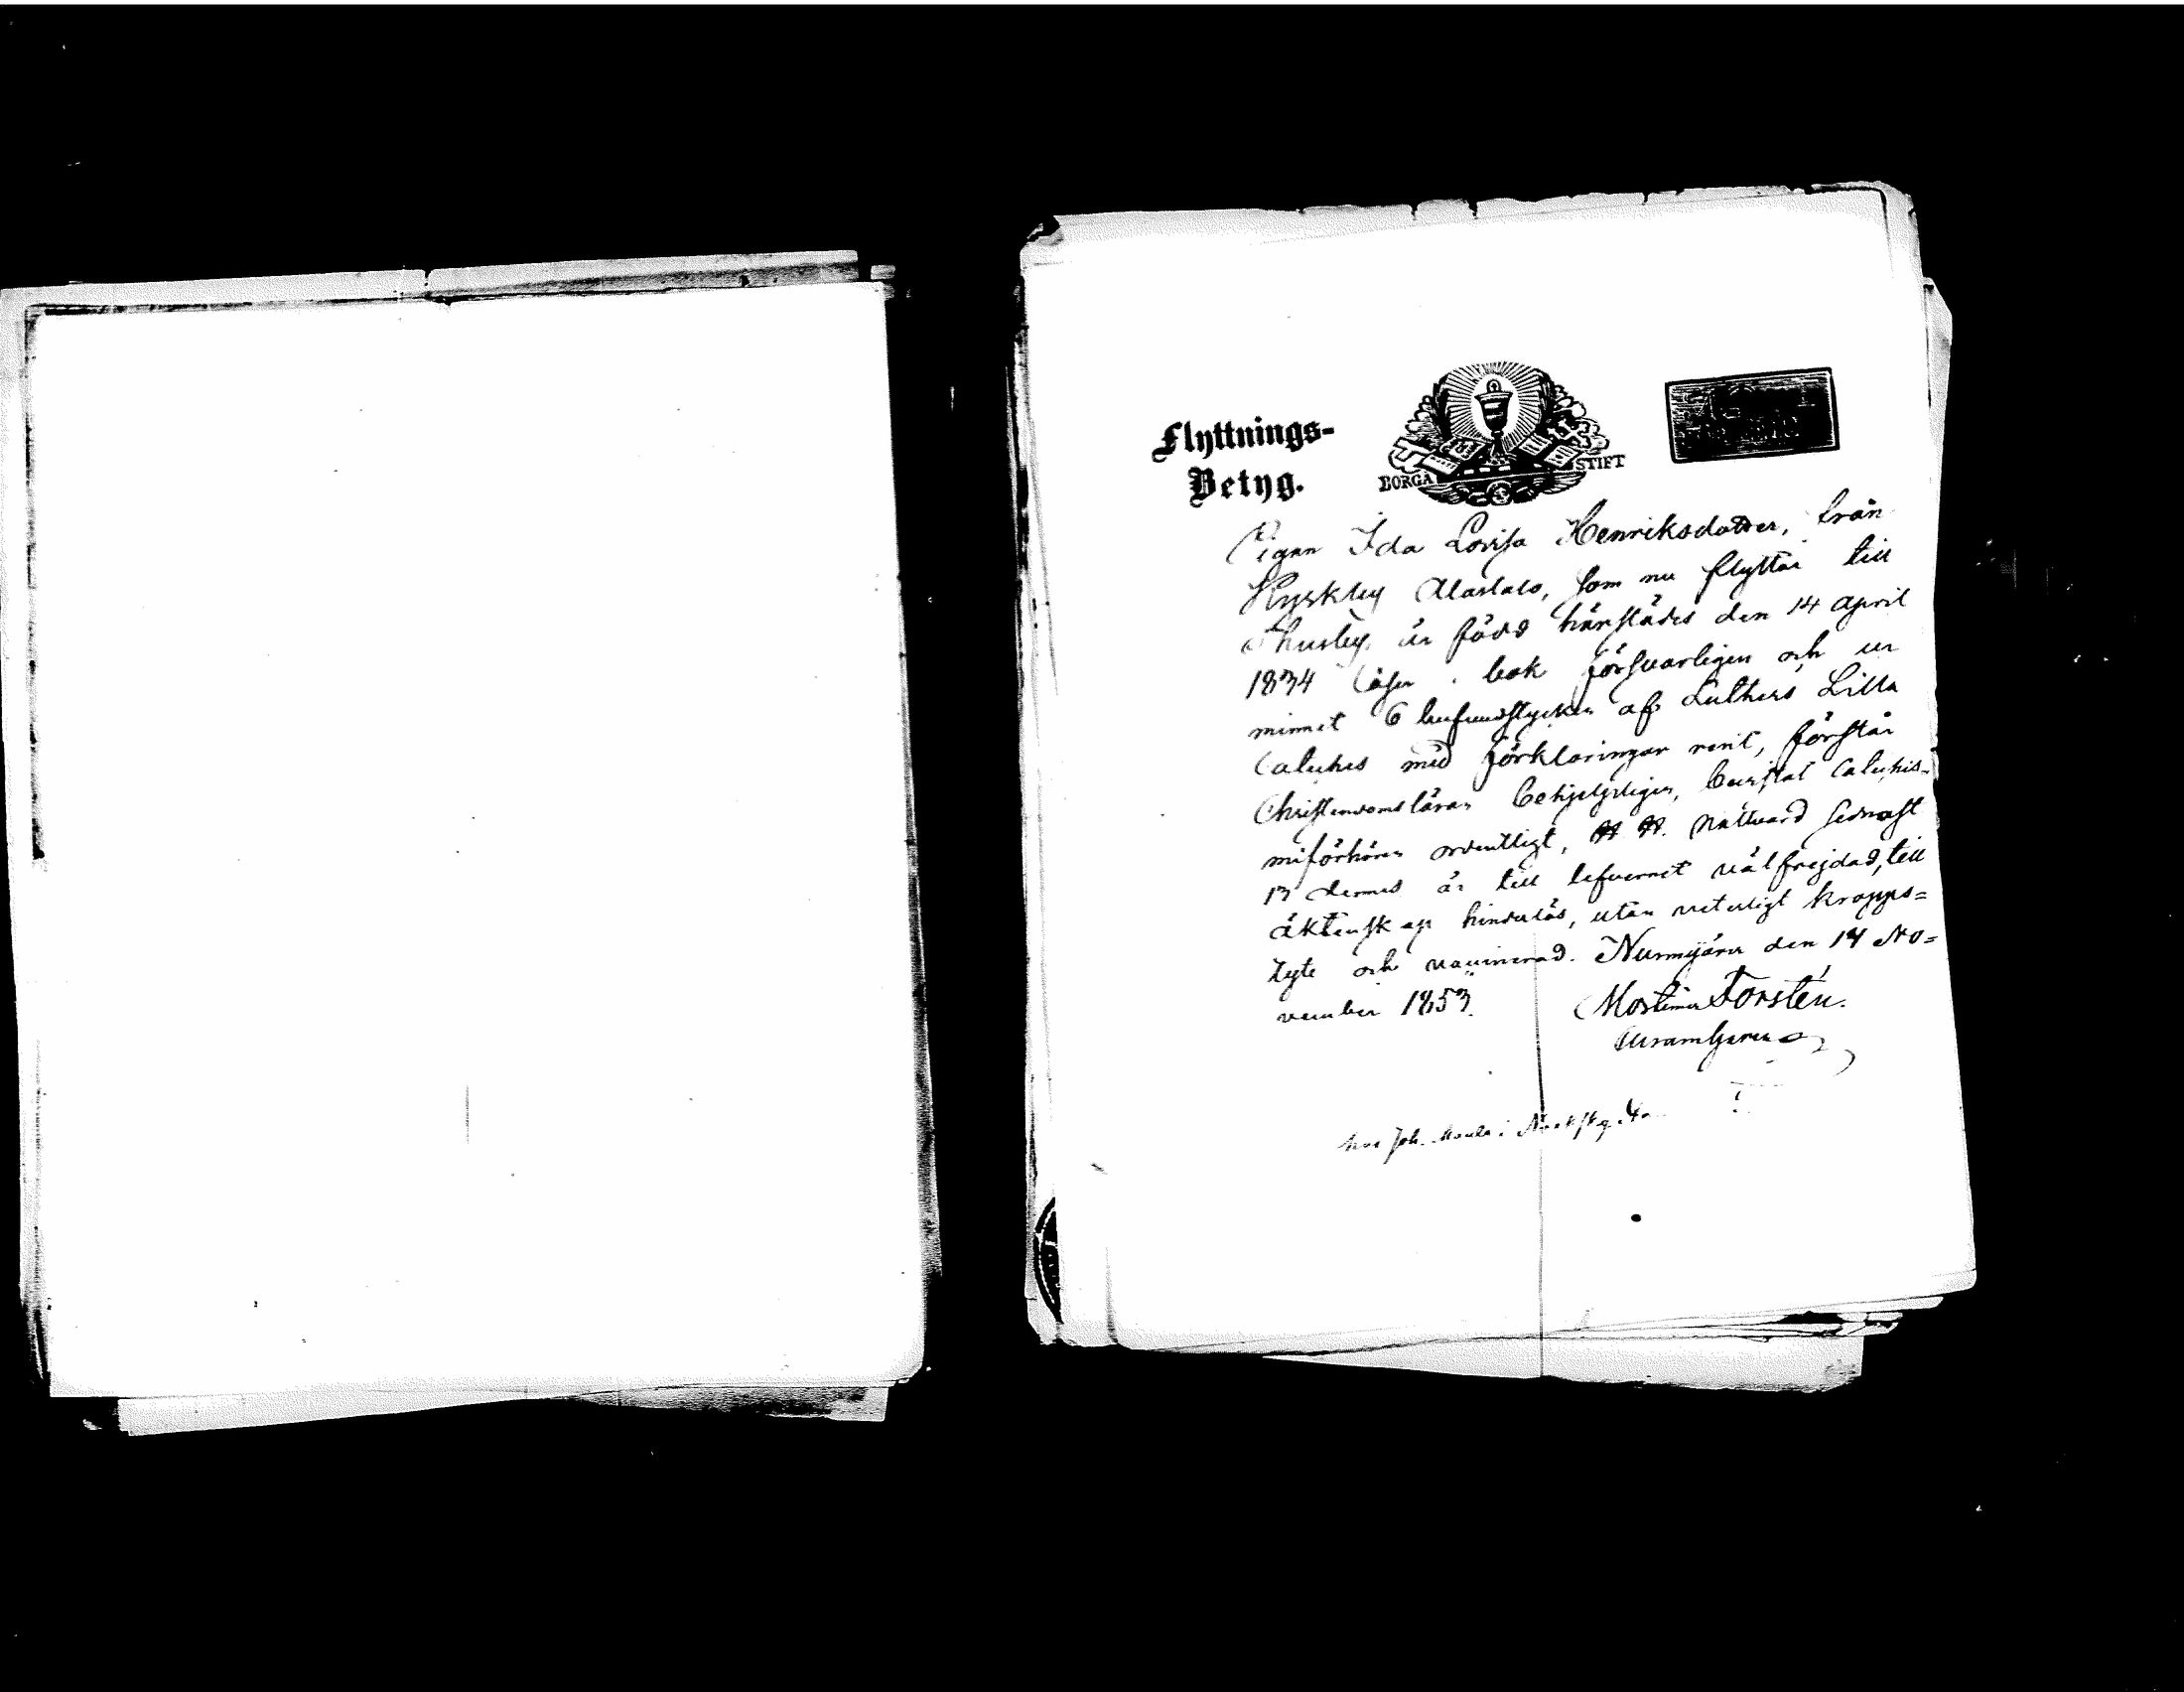 Flyttnings-
Betyg.
BORGÅ STIFT
Pigan Ida Lovisa Henriksdotter, från
Kyrkby Alastalo, som nu flyttar till
Thusby, är född härstädes den 14 April
1834 läser i bok försvarligen och ur
minnet 6 hufvudstycken af Luthers Lilla
Cateches med förklaringar rent, förstår
Christendomsläran behjelpligen, bevistat Catechis-
miförhören ordentligt, H. H. Nattvard sednast
13 dennes är till lefvernet välfrejdad, till
äktenskap hinderlös, utan veterligt kropps=
lyte och vaccinerad. Nurmijärvi den 14 No=
vember 1853.
Mortimer Forstén.
hos Joh.